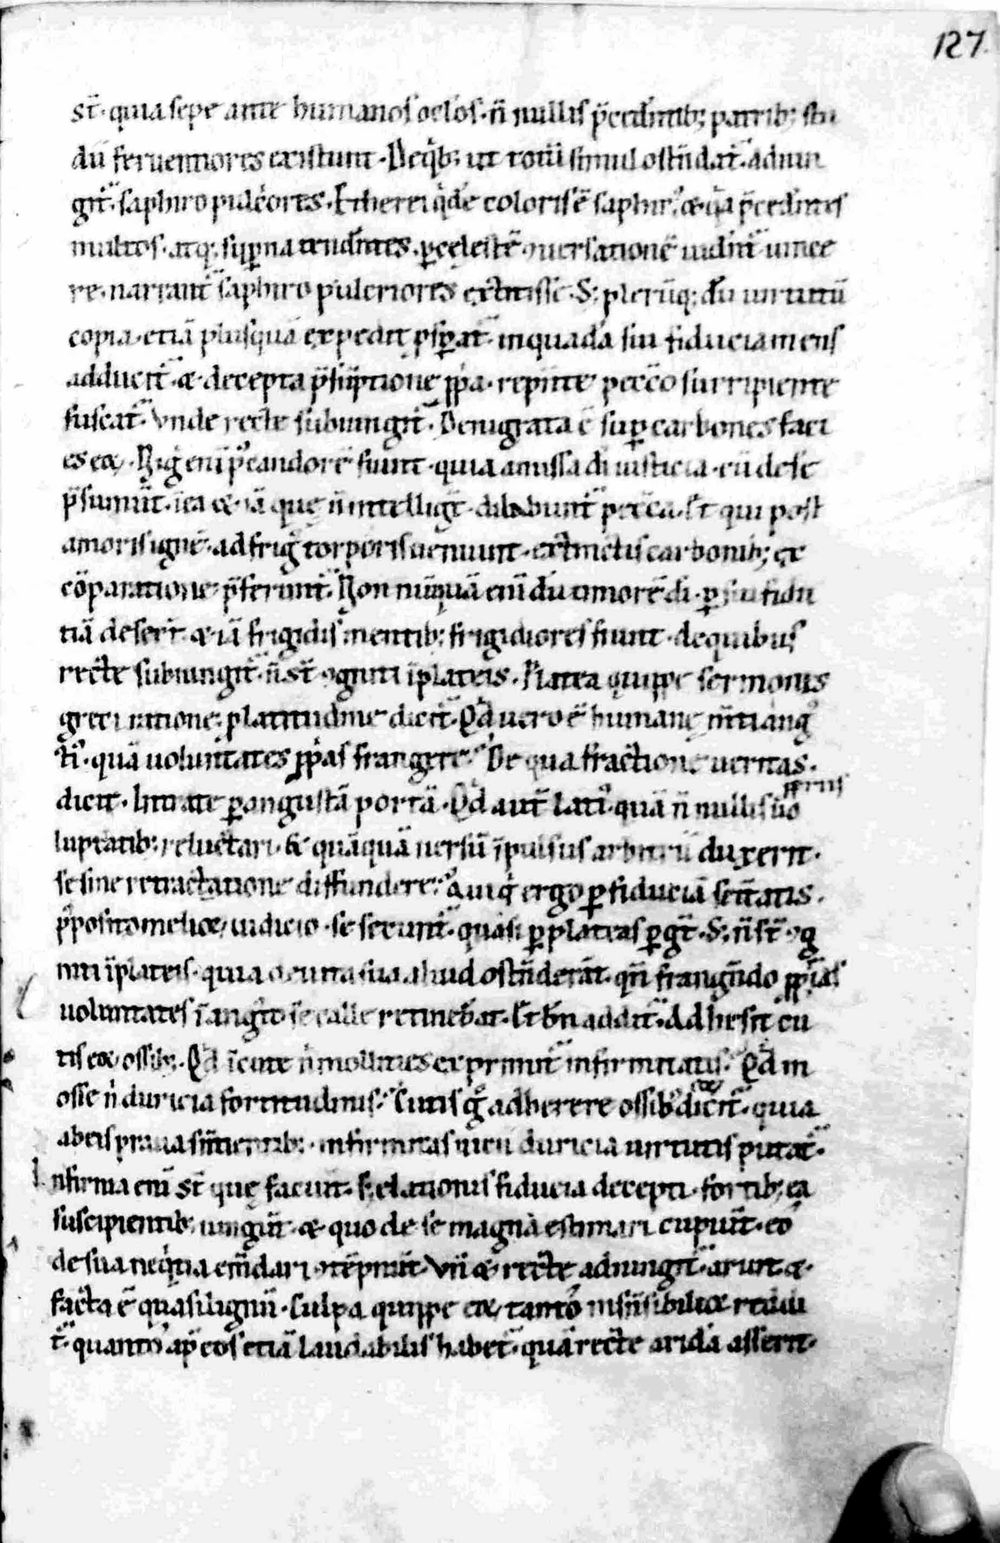 127
st̄· quia sepe ante humanos oclos· n̄ nullis p̄cedentib; patrib; stu
dii feruentiores existunt· De q̇b; ut totū simul ostn̄dat̄· adiun
git̄· saphiro pulcriores· Etherei q̇de coloris ē saphir᷒· & q̇a p̄cedntes
multos· atq; supna tendntes· p celestē ꝯuersationē uidnt̄ uince
re· narrant̄ saphiro pulcriores extitisse· S; plerūq; dū uirtutū
copia· etiā plusquā expedit ꝓsperat̄· in quadā sui fiducia mens
adducit̄· & decepta p̄sūptione ꝓpa· repnte peccō surripiente
fuscat̄· Vnde recte subiungit̄· Denigrata ē sup carbones faci
es eoꝝ· Nig eni p candorē fiunt· quia amissa di iusticia· cū de se
p̄sumūt· in ea & iā que n̄ intelligt̄· dilabunt̄ peccā· Et qui post
amoris ignē· ad frig torporis ueniunt· extinctis carbonib; ex
cōparatione p̄ferunt̄· Non nūquā eni dū timorē di· ꝑ sui fidu
tiā deserūt· & iā frigidis mentib; frigidiores fiunt· de quibus
recte subiungit̄· n̄ st̄ ꝯgniti ī plateis· Platea quippe sermonis
greci ratione· platitudine dicit̄· Qd uero ē humane m̄ti ang᷒
ti᷒· quā uoluntates ꝓpas frangere? De qua fractione ueritas·
dicit· Intrate ꝑ angustā portā· Qd aut̄ lati᷒· quā n̄ nullis suo
ꝓpriis
luptatib; reluctari· & quāquā uersū īpulsus arbitrii duxerit·
se sine retractatione diffundere? Qui q̇ ergo ꝑ fiduciā sc̄itatis·
p̄posito melioꝝ iudicio· se secunt̄· quasi ꝑ plateas ꝑgt̄· S; n̄ st̄ ꝯg
niti ī plateis· quia de uita sua aliud ostn̄derāt· qn̄ frangn̄do ꝓprias
uoluntates ī angto se calle retinebat· Et bn̄ addit̄· Adhesit cu
tis eoꝝ ossib;· Qd ī cute n̄ mollities exprimit̄ infirmitatis? Qd in
osse n̄ duricia fortitudinis? Cutis g̊ adherere ossib dicit̄· quia
ab eis praua sntientib;· infirmitas uicii duricia uirtutis putat̄·
Infirma eni st̄ que faciūt· s; elationis fiducia decepti· fortib; ea
suscipientib; iungūt· & quo de se magna estimari cupiūt· eo
de sua neq̇tia em̄dari ꝯtēpnūt· Vn̄ & recte adiungit̄· aruit &·
facta ē quasi lignū· Culpa quippe eoꝝ tanto insn̄sibilioꝝ reddi
t̄· quanto ap̄ eos etiā laudabilis habet̄· quā recte aridā asserit·